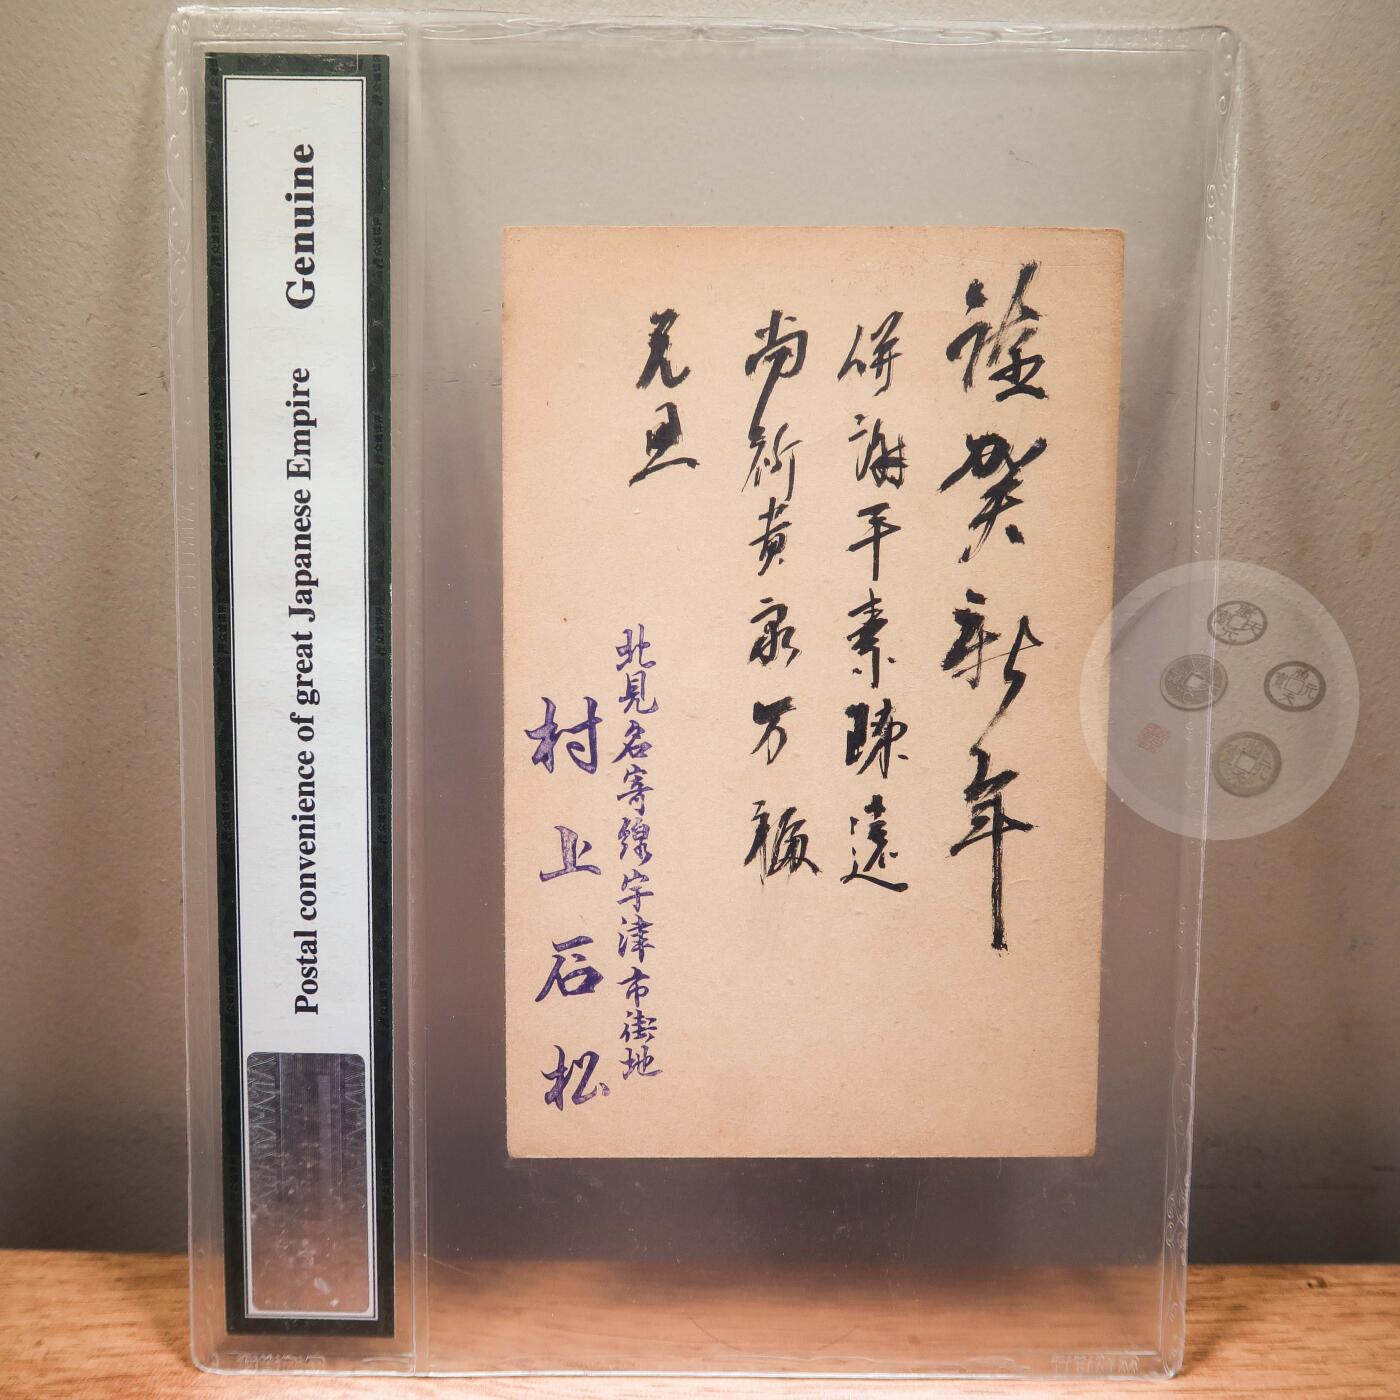 謹賀新年
併謝平素疎遠
尚祈貴家万福
元旦
北見名寄線宇津市街地
村上石松
Postal convenience of great Japanese Empire Genuine